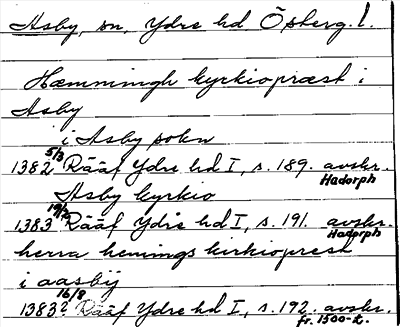 Asby, sn, Ydre hd Östberg. 1.
Hæmmingh kyrkiopræst i
Asby
i Asby sokn
1382 5/3 Rääf Ydre hd I, s. 189. avskr. Hadorph
Asby kyrkio
1383 Rääf Ydre hd I, s. 191. avskr. Hadorph
herra henings kirkioprest
i aasbÿ
1383 16/8 Rääf Ydre hd I, s. 192. avskr. fr. 1500-t.